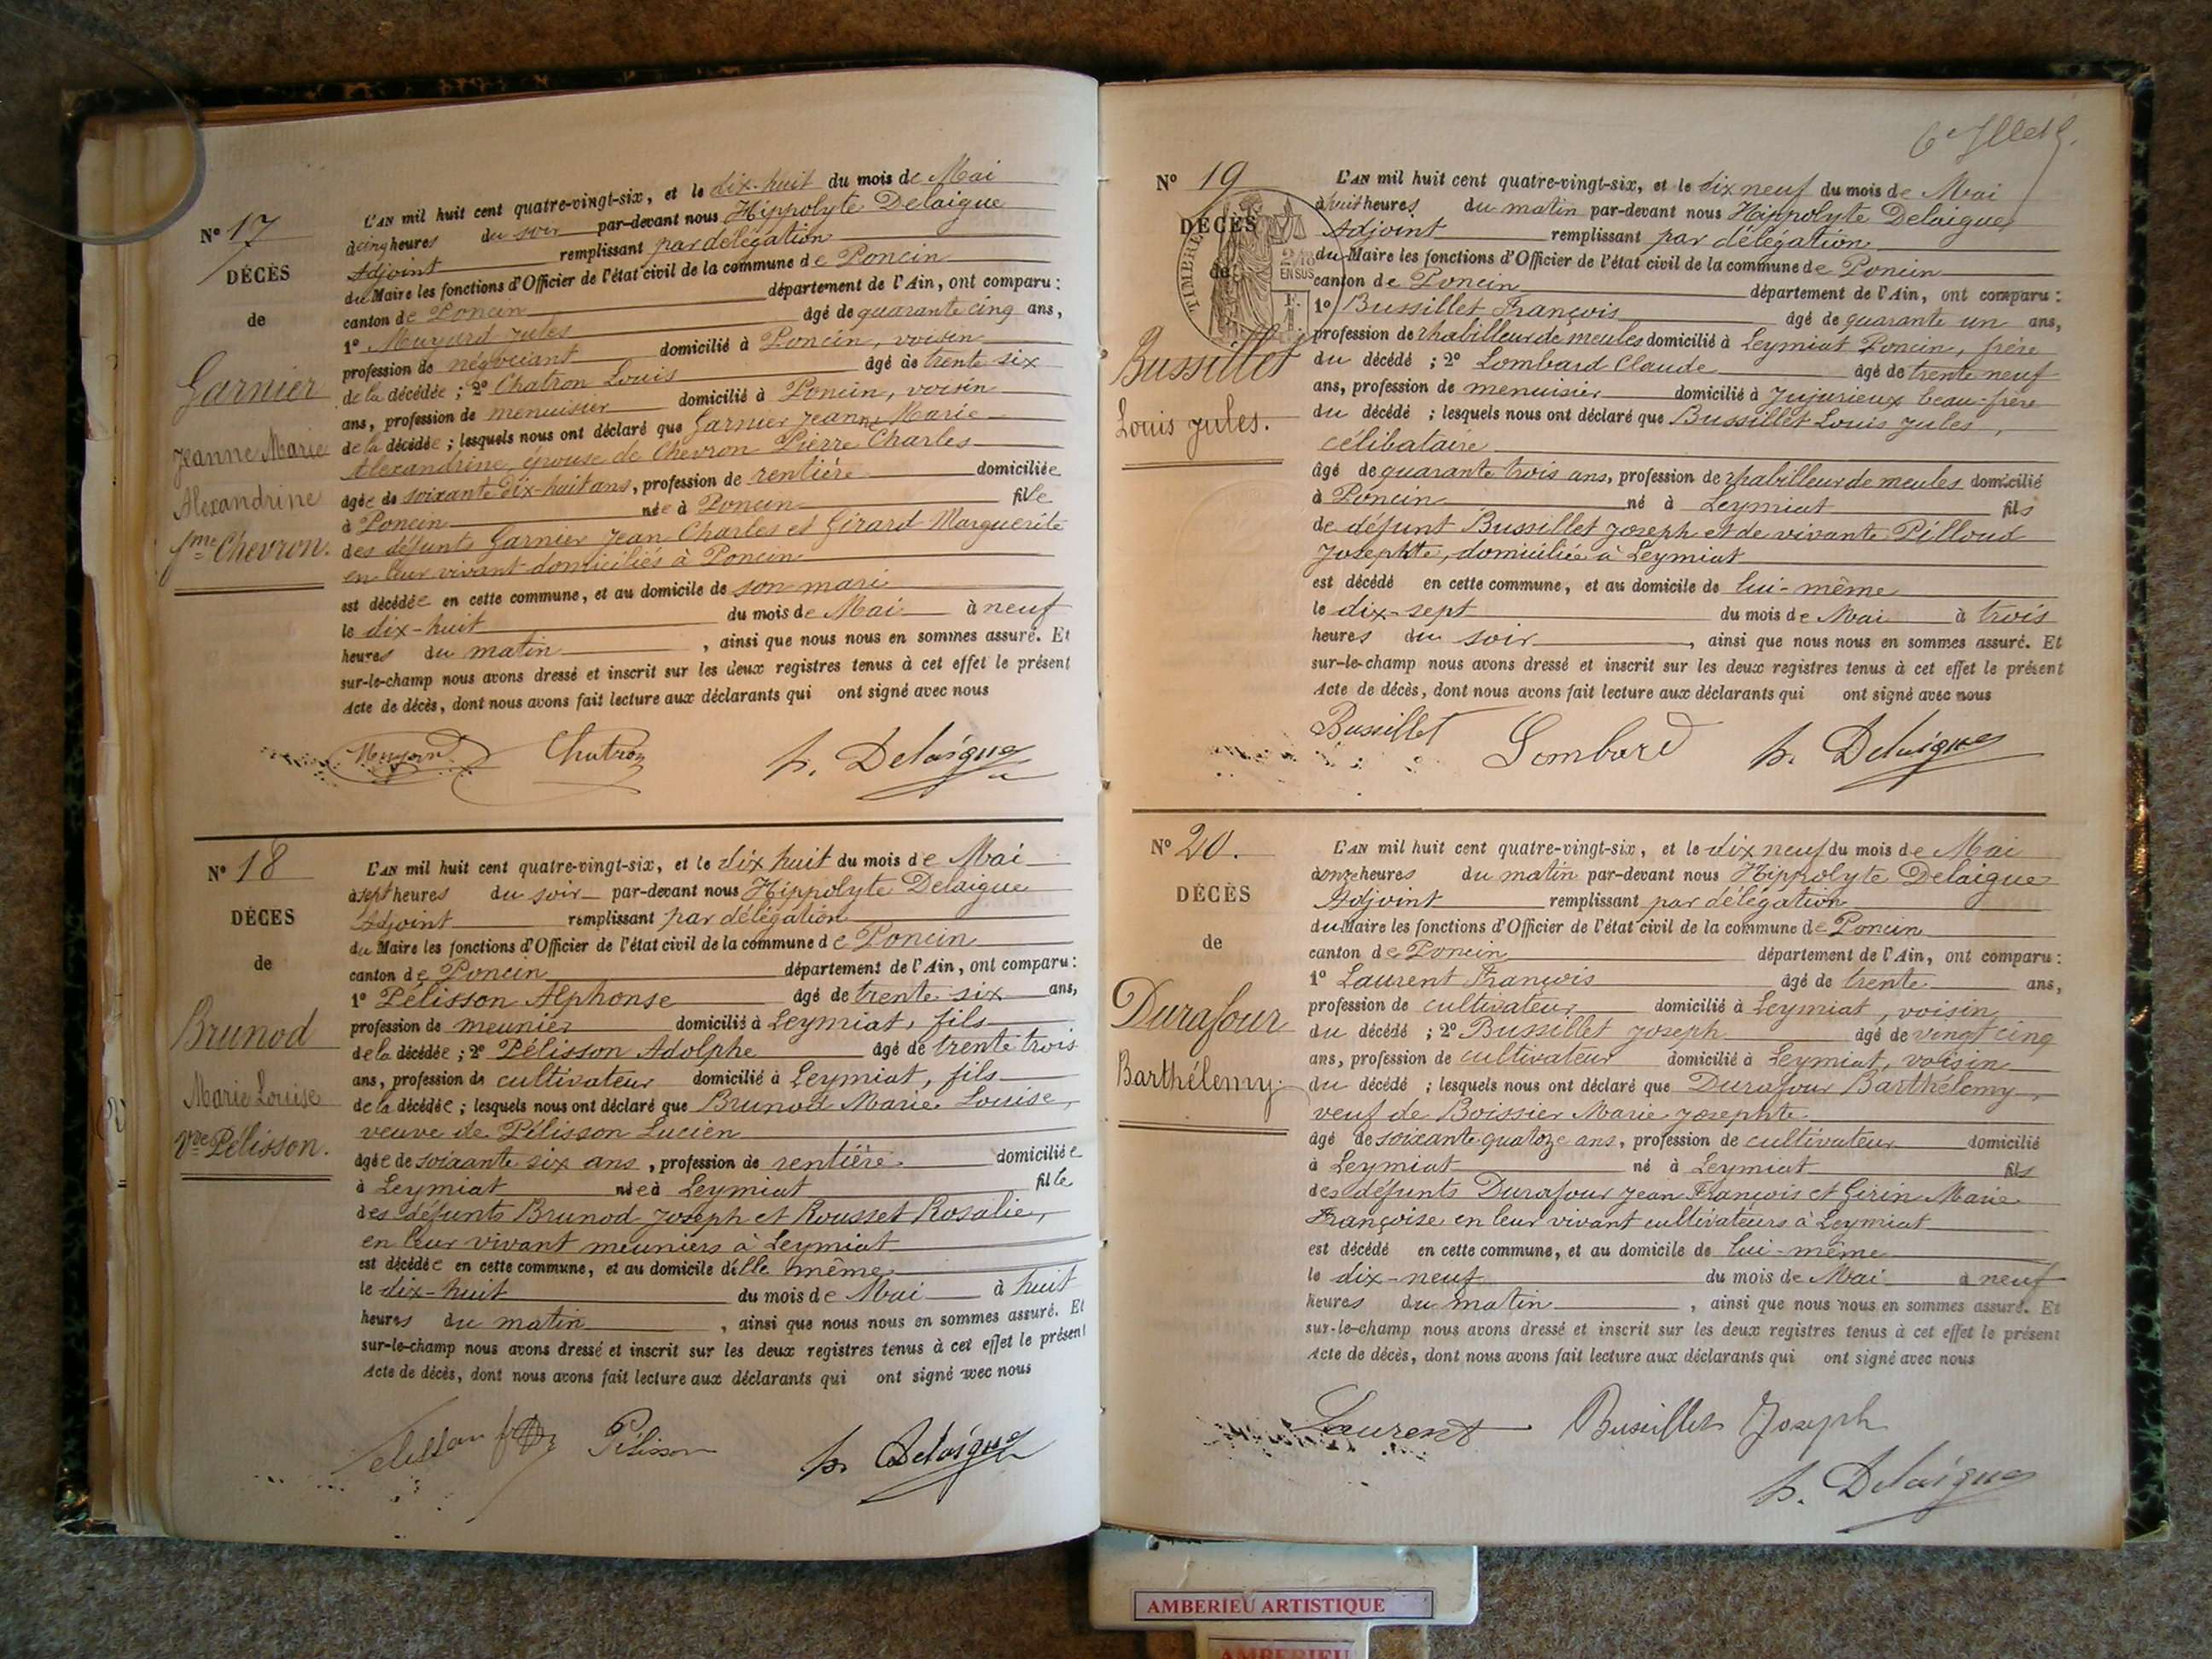 N° 17
DÉCÈS
de
Garnier
Jeanne Marie
Alexandrine
fme Chevron.
L'AN mil huit cent quatre-vingt-six, et le dix-huit du mois de Mai
à cinq heures du soir par-devant nous Hippolyte Delaigue
Adjoint remplissant par délégation
du Maire les fonctions d'Officier de l'état civil de la commune de Poncin
canton de Poncin département de l'Ain, ont comparu :
1° Muzard Jules âgé de quarante cinq ans,
profession de négociant domicilié à Poncin, voisin
de la décédée ; 2° Chatron Louis âgé de trente six
ans, profession de menuisier domicilié à Poncin, voisin
de la décédée ; lesquels nous ont déclaré que Garnier Jeanne Marie
Alexandrine, épouse de Chevron Pierre Charles
âgée de soixante dix-huit ans, profession de rentière domiciliée
à Poncin née à Poncin fille
des défunts Garnier Jean Charles et Girard Marguerite
en leur vivant domiciliés à Poncin
est décédée en cette commune, et au domicile de son mari
le dix-huit du mois de Mai à neuf
heures du matin , ainsi que nous nous en sommes assuré. Et
sur-le-champ nous avons dressé et inscrit sur les deux registres tenus à cet effet le présent
Acte de décès, dont nous avons fait lecture aux déclarants qui ont signé avec nous
Chatron h. Delaigue
N° 18
DÉCES
de
Brunod
Marie Louise
Vve Pélisson.
L'AN mil huit cent quatre-vingt-six, et le dix huit du mois de Mai
à sept heures du soir par-devant nous Hippolyte Delaigue
Adjoint remplissant par délégation
du Maire les fonctions d'Officier de l'état civil de la commune de Poncin
canton de Poncin département de l'Ain, ont comparu :
1° Pélisson Alphonse âgé de trente six ans,
profession de meunier domicilié à Leymiat, fils
de la décédée ; 2° Pélisson Adolphe âgé de trente trois
ans, profession de cultivateur domicilié à Leymiat, fils
de la décédée ; lesquels nous ont déclaré que Brunod Marie Louise,
veuve de Pélisson Lucien
âgée de soixante six ans, profession de rentière domiciliée
à Leymiat née à Leymiat fille
des défunts Brunod Joseph et Rousset Rosalie,
en leur vivant meuniers à Leymiat
est décédée en cette commune, et au domicile d'elle même
le dix-huit du mois de Mai à huit
heures du matin , ainsi que nous nous en sommes assuré. Et
sur-le-champ nous avons dressé et inscrit sur les deux registres tenus à cet effet le présent
Acte de décès, dont nous avons fait lecture aux déclarants qui ont signé avec nous
Pélisson h. Delaigue
N° 19
DÉCÈS
de
TIMBRE
2/10
EN SUS
Bussillet
Louis Jules.
L'AN mil huit cent quatre-vingt-six, et le dix neuf du mois de Mai
à huit heures du matin par-devant nous Hippolyte Delaigue
Adjoint remplissant par délégation
du Maire les fonctions d'Officier de l'état civil de la commune de Poncin
canton de Poncin département de l'Ain, ont comparu :
1° Bussillet François âgé de quarante un ans,
profession de rhabilleur de meules domicilié à Leymiat Poncin, frère
du décédé ; 2° Lombard Claude âgé de trente neuf
ans, profession de menuisier domicilié à Jujurieux beau-frère
du décédé ; lesquels nous ont déclaré que Bussillet Louis Jules,
célibataire
âgé de quarante trois ans, profession de rhabilleur de meules domicilié
à Poncin né à Leymiat fils
de défunt Bussillet Joseph et de vivante Pilloud
Josephte, domiciliée à Leymiat
est décédé en cette commune, et au domicile de lui-même
le dix-sept du mois de Mai à trois
heures du soir , ainsi que nous nous en sommes assuré. Et
sur-le-champ nous avons dressé et inscrit sur les deux registres tenus à cet effet le présent
Acte de décès, dont nous avons fait lecture aux déclarants qui ont signé avec nous
Bussillet Lombard h. Delaigue
N° 20.
DÉCÈS
de
Durafour
Barthélemy.
L'AN mil huit cent quatre-vingt-six, et le dix neuf du mois de Mai
à onze heures du matin par-devant nous Hippolyte Delaigue
Adjoint remplissant par délégation
du Maire les fonctions d'Officier de l'état civil de la commune de Poncin
canton de Poncin département de l'Ain, ont comparu :
1° Laurent François âgé de trente ans,
profession de cultivateur domicilié à Leymiat, voisin
du décédé ; 2° Bussillet Joseph âgé de vingt cinq
ans, profession de cultivateur domicilié à Leymiat, voisin
du décédé ; lesquels nous ont déclaré que Durafour Barthélemy,
veuf de Boissier Marie Josephte
âgé de soixante quatoze ans, profession de cultivateur domicilié
à Leymiat né à Leymiat fils
des défunts Durafour Jean François et Girin Marie
Françoise en leur vivant cultivateurs à Leymiat
est décédé en cette commune, et au domicile de lui-même
le dix-neuf du mois de Mai à neuf
heures du matin , ainsi que nous nous en sommes assuré. Et
sur-le-champ nous avons dressé et inscrit sur les deux registres tenus à cet effet le présent
Acte de décès, dont nous avons fait lecture aux déclarants qui ont signé avec nous
Laurent Bussillet Joseph
h. Delaigue
AMBERIEU ARTISTIQUE
AMBERIEU